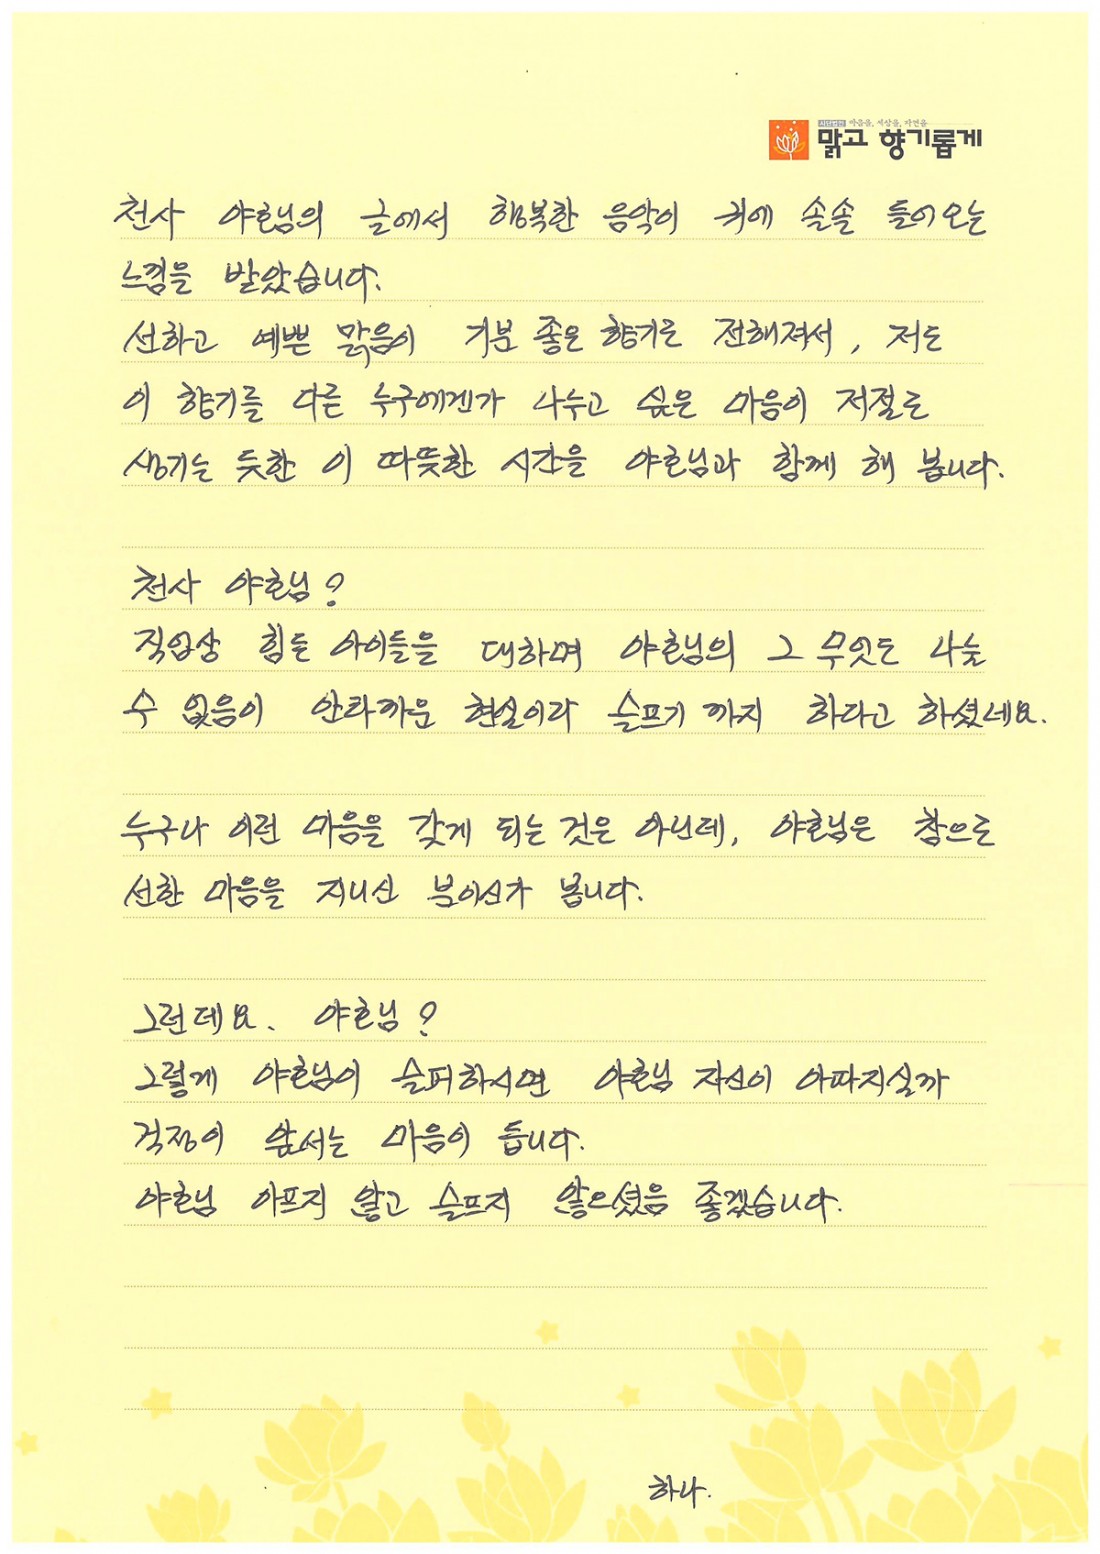 사단법인 마음을, 세상을, 자연을
맑고 향기롭게
천사 야호님의 글에서 행복한 음악이 귀에 솔솔 들어오는
느낌을 받았습니다.
선하고 예쁜 맑음이 기분 좋은 향기로 전해져서, 저도
이 향기를 다른 누구에겐가 나누고 싶은 마음이 저절로
생기는 듯한 이 따뜻한 시간을 야호님과 함께 해 봅니다.
천사 야호님?
직업상 힘든 아이들을 대하며 야호님의 그 무엇도 나눌
수 없음이 안타까운 현실이라 슬프기 까지 하다고 하셨네요.
누구나 이런 마음을 갖게 되는 것은 아닌데, 야호님은 참으로
선한 마음을 지니신 분이신가 봅니다.
그런데요. 야호님?
그렇게 야호님이 슬퍼하시면 야호님 자신이 아파지실까
걱정이 앞서는 마음이 듭니다.
야호님 아프지 않고 슬프지 않으셨음 좋겠습니다.
하나.